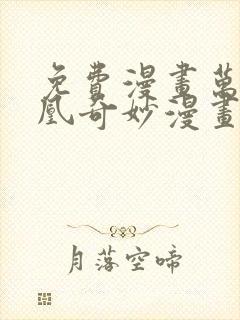 免費漫畫萬
凰奇妙漫畫
月落空啼